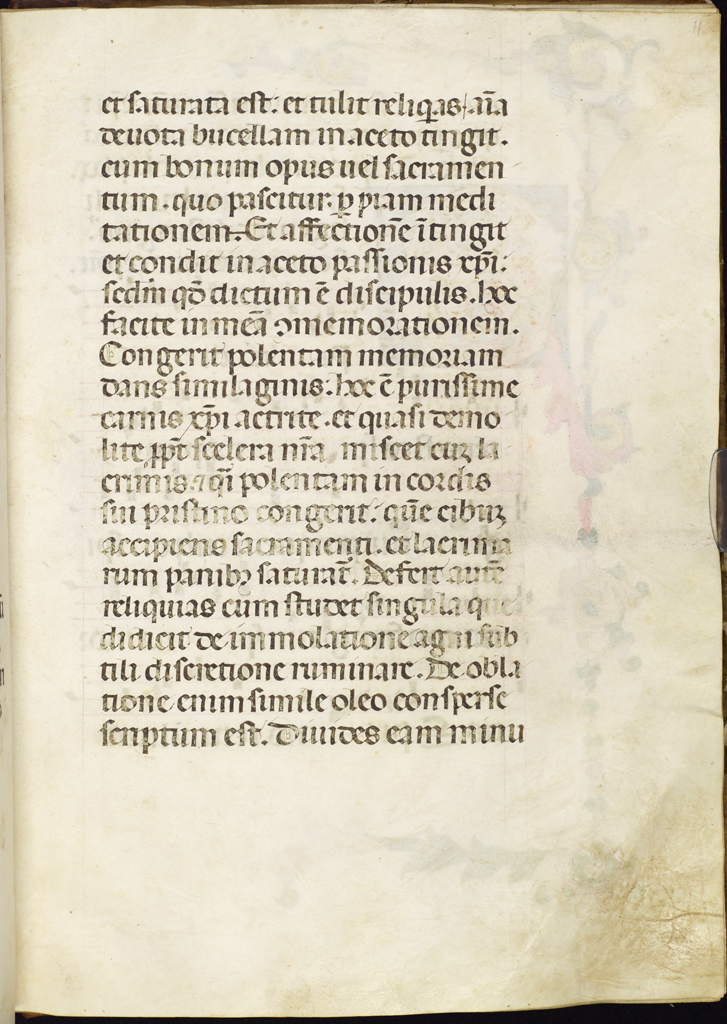 et saturata est. et tulit reliq̅as. aīa
deuota bucellam in aceto tingit.
cum bonum opus uel sacramen
tum. quo pascitur. ꝑ piam medi
tationem. Et affectionē ītingit
et condit in aceto passionis xp̅i:
sedm̅ qd̅ dictum ē discipulis. hoc
facite in meā ↄmemorationem.
Congerit polentam memoriam
dans similaginis. hoc ē purissime
carnis xp̅i actrite. et quasi demo
lite ꝓpt̅ scelera nr̅a miscet cuȝ la
crimis. qͥ polentam in cordis
sui pristino congerit. que̅ cibuȝ
accipiens sacramenti. et lacrima
rum panibȝ saturat̅. Defert aute̅
reliquias cum studet singula que
didicit de immolatione agni sub
tili discretione ruminare. De obla
tione enim simile oleo consperse
scriptum est. Diuides eam minu